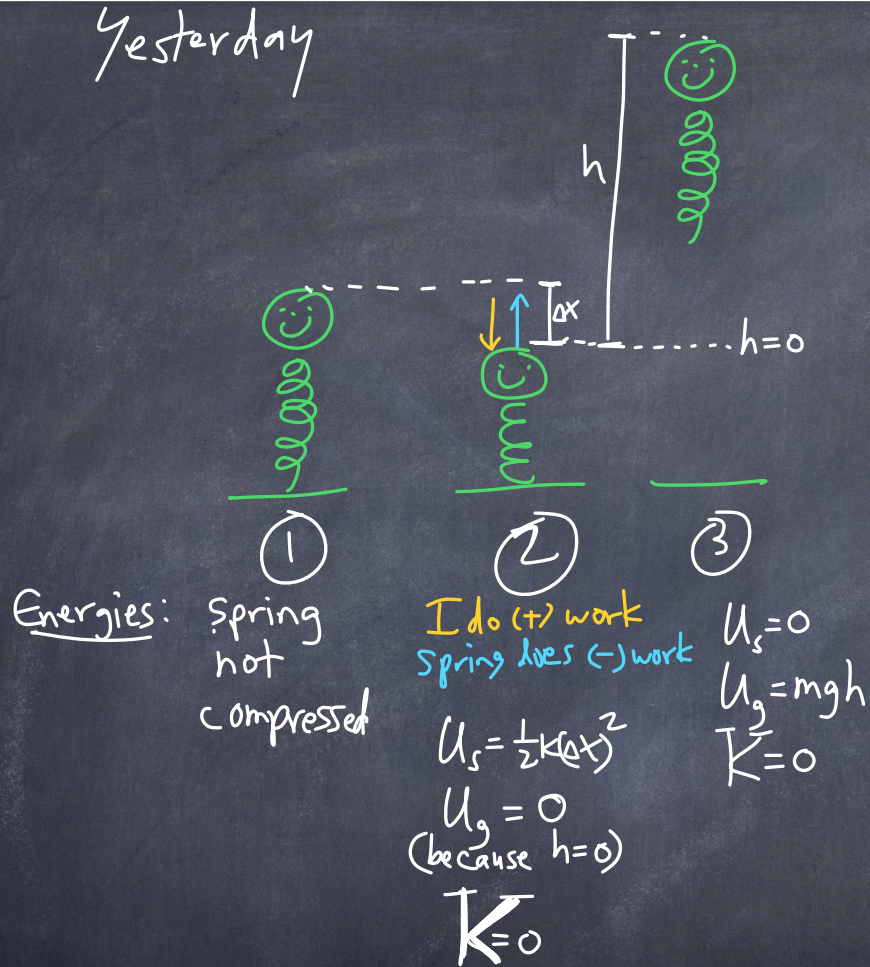 Yesterday
h
Δx
h=0
1
2
3
Energies:
spring
not
compressed
I do (+) work
spring does (-) work
Uₛ=½k(Δx)²
U_g = 0
(because h=0)
K=0
Uₛ=0
U_g=mgh
K=0